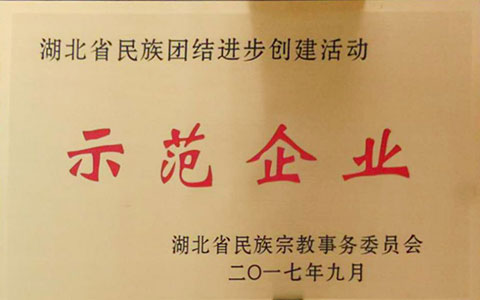 湖北省民族团结进步创建活动
示范企业
湖北省民族宗教事务委员会
二〇一七年九月